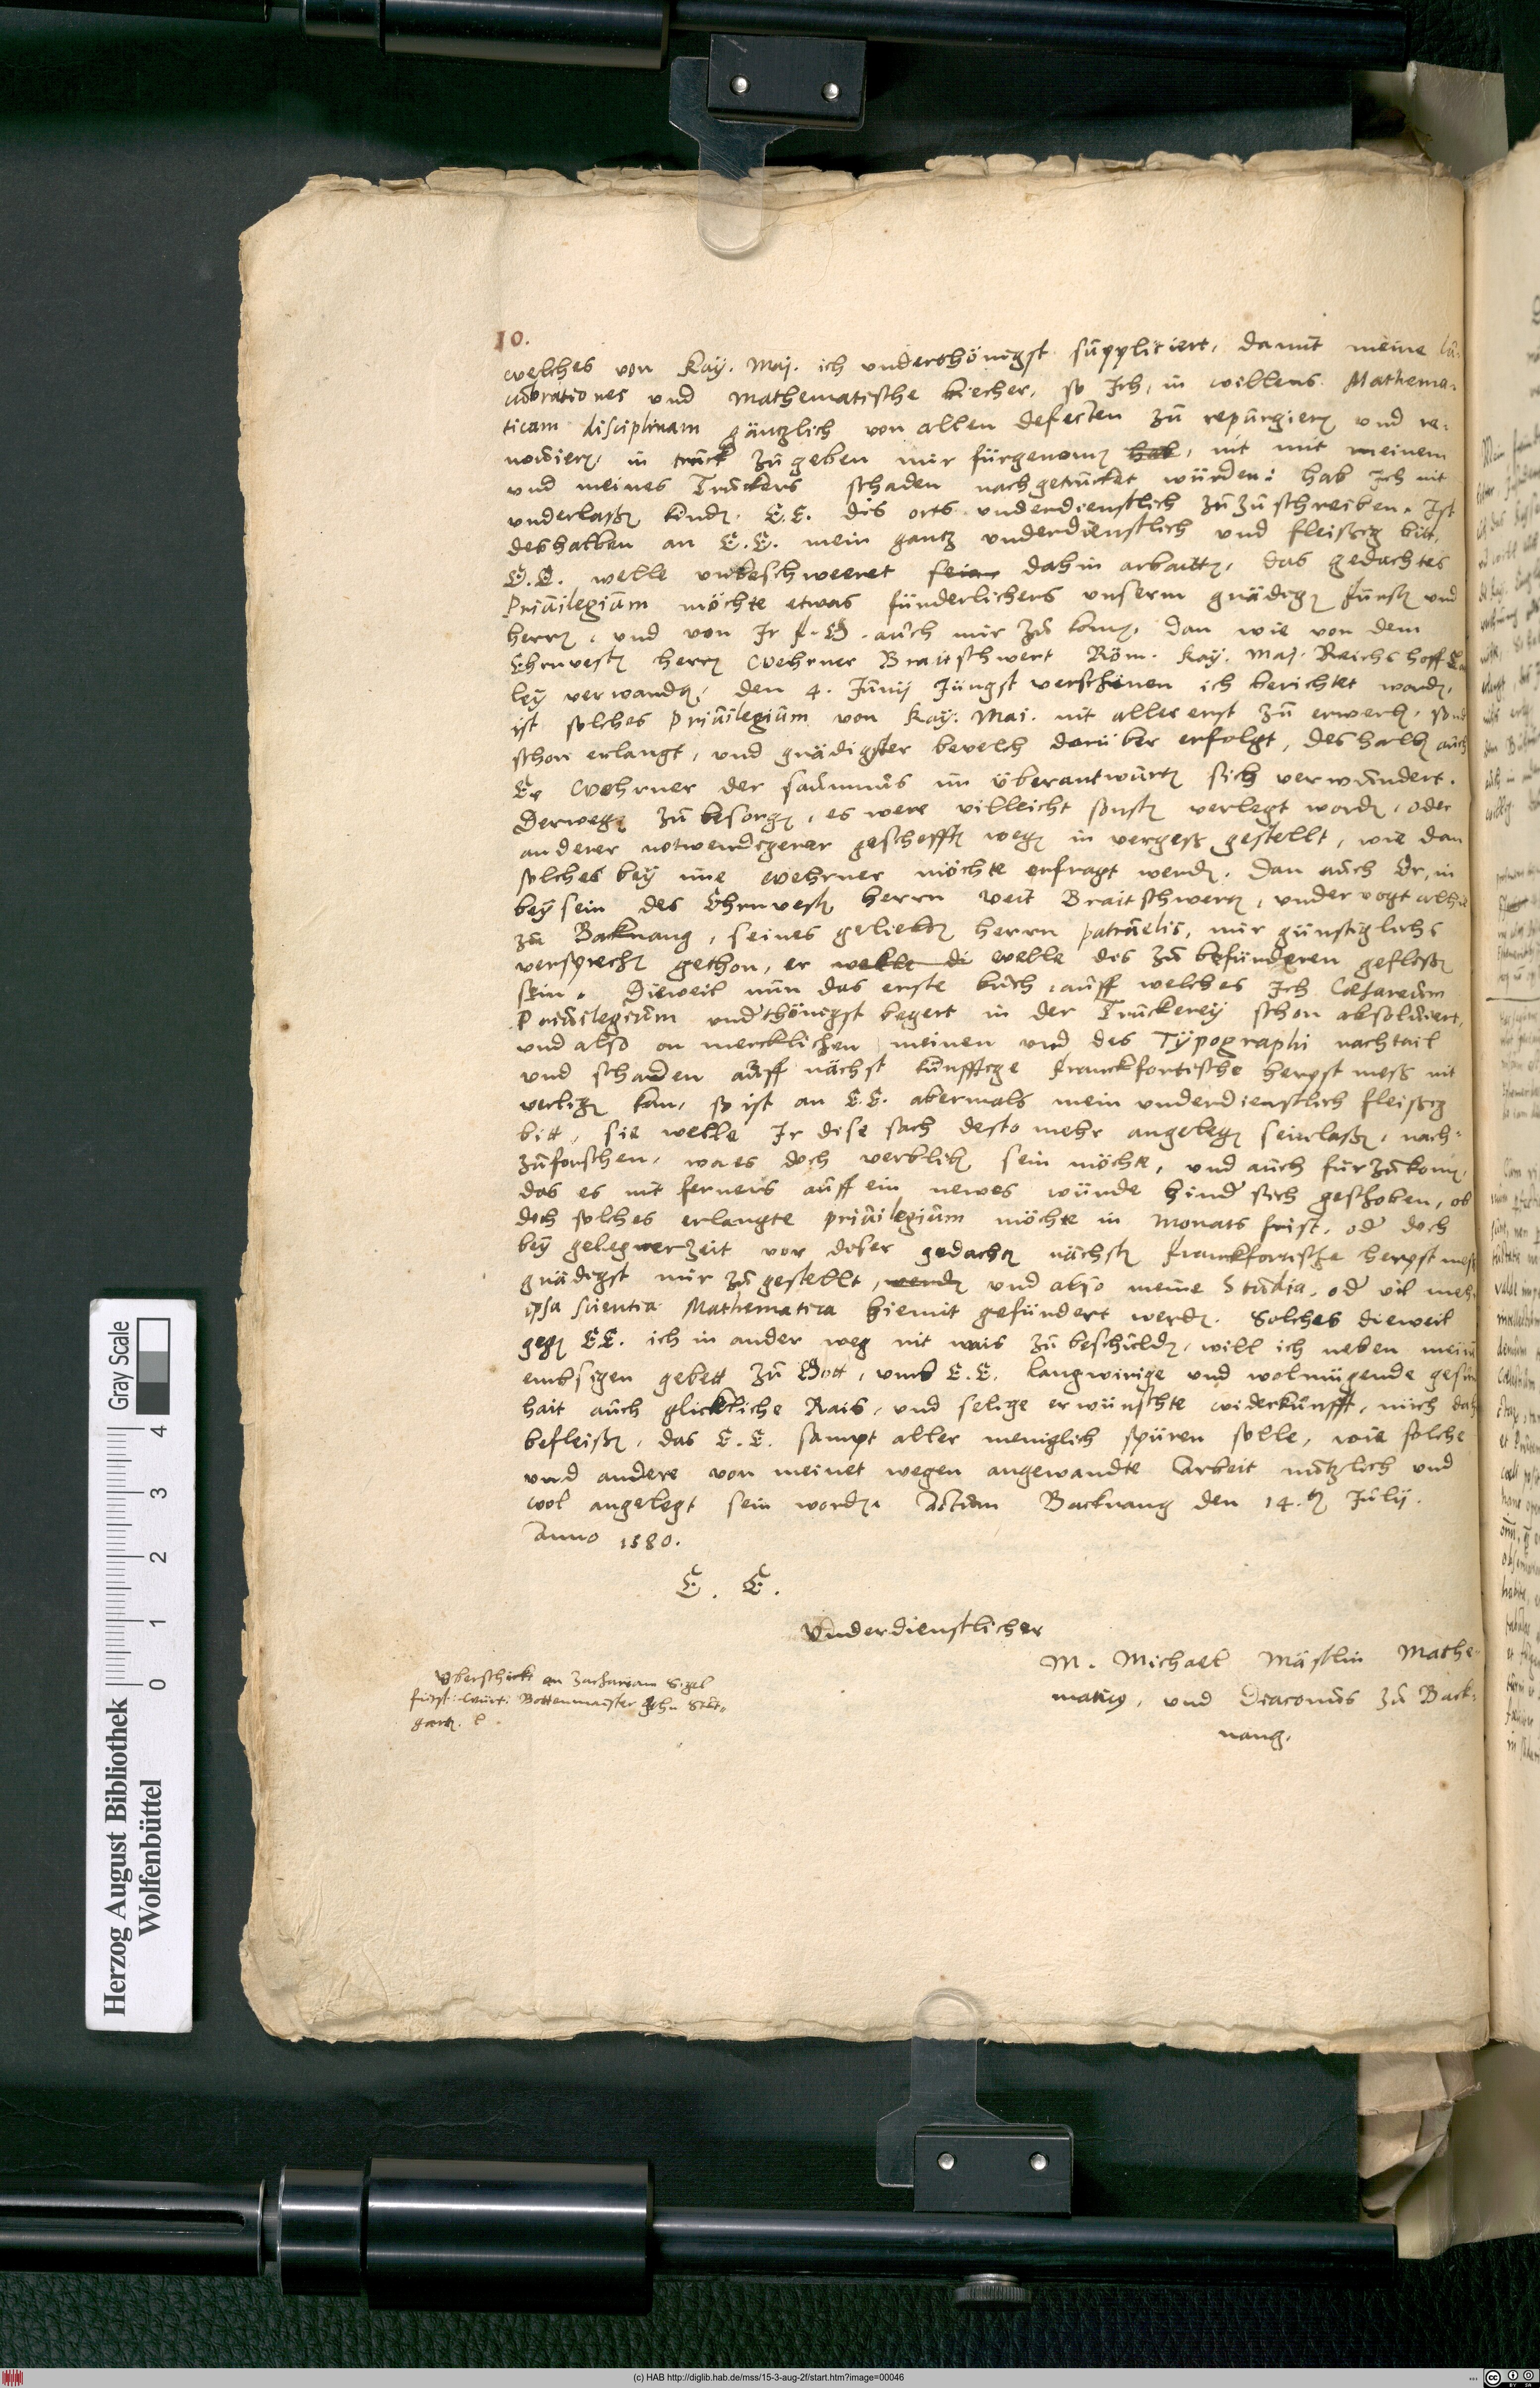 10.
welches von Kay. Maj. ich underthönigst suppliciert, damit meine lu-
cubrationes und Mathematische biecher, so Ich, in willens Mathema-
ticam disciplinam gäntzlich von allen defecten zu repurgieren und re-
novieren, in truck zu geben mir fürgenomen hab, nit mit meinem
und meines Truckers schaden nachgetrucket würden: hab Ich nit
underlaßen kinden E.E. dis orts underdienstlich zu zuschreiben. Ist
deshalben an E.E. mein gantz underdienstlich und fleissig bitt,
E.E. welle unbeschweeret sein dahin arbaitten, das gedachtes
Priuilegium möchte etwas fürderlichers unserm gnädigen fürsten und
herren, und von Ir f. G. auch mir zu komen, dan wie von dem
Ehrnvesten herren Wehrner Braitschwert Röm. Kay. Maj. Reichshoff Can
ley verwandten, den 4. Junij Jüngst verschinen ich berichtet worden,
ist solches Priuilegium von Kay. Mai. nit aller erst zu erwerben, sond
schon erlangt, und gnädigster bevelch darüber erfolgt, deshalben auch
Er Wehrner der saumnus im überantwurten sich verwundert.
Derwegen zu besorgen, es were villeicht sonsten verlegt worden, oder
anderer notwendigerer geschefften wegen in vergeß gestellt, wie dan
solches bey ime Wehrner möchte erfragt werden. Dan auch Er, in
beysein des Ehrnvesten herrn Veit Braitschwerten, undervogt alhie
zu Baknang, seines geliebten herrn patruelis, mir günstiglichs
versprechen gethon, er welle di welle des zu befürderen geflissen
sein. Dieweil nun das erste buch, auff welches Ich Cæsareum
Priuilegium underthönigst begert in der Truckerey schon absoluiert,
und also on mercklichen meinen und des Typographi nachtail
und schaden auff nächst künfftige franckfortische herpst meß nit
verligen kan, so ist an E.E. abermals mein underdienstlich fleissig
bitt, sie welle Ir dise sach desto mehr angelegen sein laßen, nach-
zuforschen, wa es doch verbliben sein möchte, und auch fürzukomen,
das es nit ferners auff ein newes würde hinder sich geschoben, ob
doch solches erlangte priuilegium möchte in Monats frist, oder doch
bey gelegner zeit vor diser gedachten nächsten franckfortische herpst meß
gnädigst mir zugestellt, werden und also meine Studia, oder vil meh
ipsa scientia Mathematica hiemit gefürdert werden. Solches dieweil
gegen E E. ich in ander weg nit wais zu beschulden, will ich neben meine
embsigen gebett zu Gott, umb E.E. langwirige und wolmügende gesun
hait auch glickliche Rais, und selige erwünschte widerkunfft, mich dah
befleißen, das E.E. sampt aller meniglich spüren solle, wie solche
und andere von meinet wegen angewandte Arbeit nutzlich und
wol angelegt sein worden. Actum Backnang den 14.ten Julij.
Anno 1580.
E. E.
Underdienstlicher
M. Michael Mästlin Mathe-
maticus, und Diaconus zu Back-
nang.
Uberschickt an Zachariam
fürst. Würt. Bottenmaister Stut-
garten.
Herzog August Bibliothek
Wolfenbüttel
Gray Scale
0 1 2 3 4
(c) HAB http://diglib.hab.de/mss/15-3-aug-2f/start.htm?image=00046